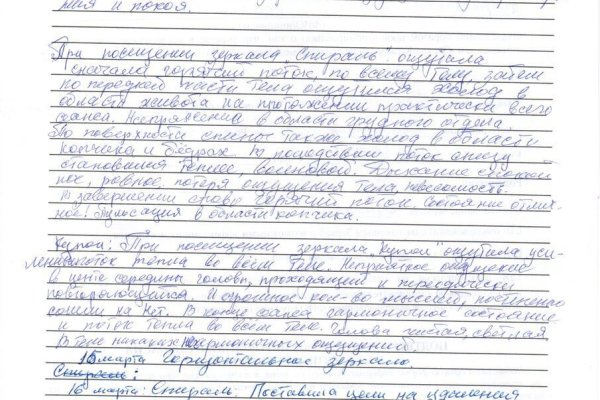 ния и покоя.
При посещении зеркала "Спираль" ощутила
сначала горячий поток, по всему телу, затем
по передней части тела ощущался холод в
области живота на протяжении практически всего
сеанса. Напряжение в области грудного отдела.
По поверхности спины также холод в области
копчика и бёдрах. В последствии поток снизу
становился теплее, волновой. Дыхание спокой-
ное, ровное, потеря ощущения тела, невесомость.
В завершении снова горячий поток. Состояние отлич-
ное. Пульсация в области копчика.
Купол: При посещении зеркала "Купол" ощутила уси-
ление поток тепла во всём теле. Неприятное ощущение
в центе середины головы, проходящий и периодически
повторяющийся. И огромное кол-во мыслей, постепенно
сошли на нет. В конце сеанса гармоничное состояние
и поток тепла во всём теле. Голова чистая, светлая,
в теле никаких негармоничных ощущений.
15 марта Горизонтальное зеркало.
Спираль:
16 марта: Спираль. Поставила цели на удаления